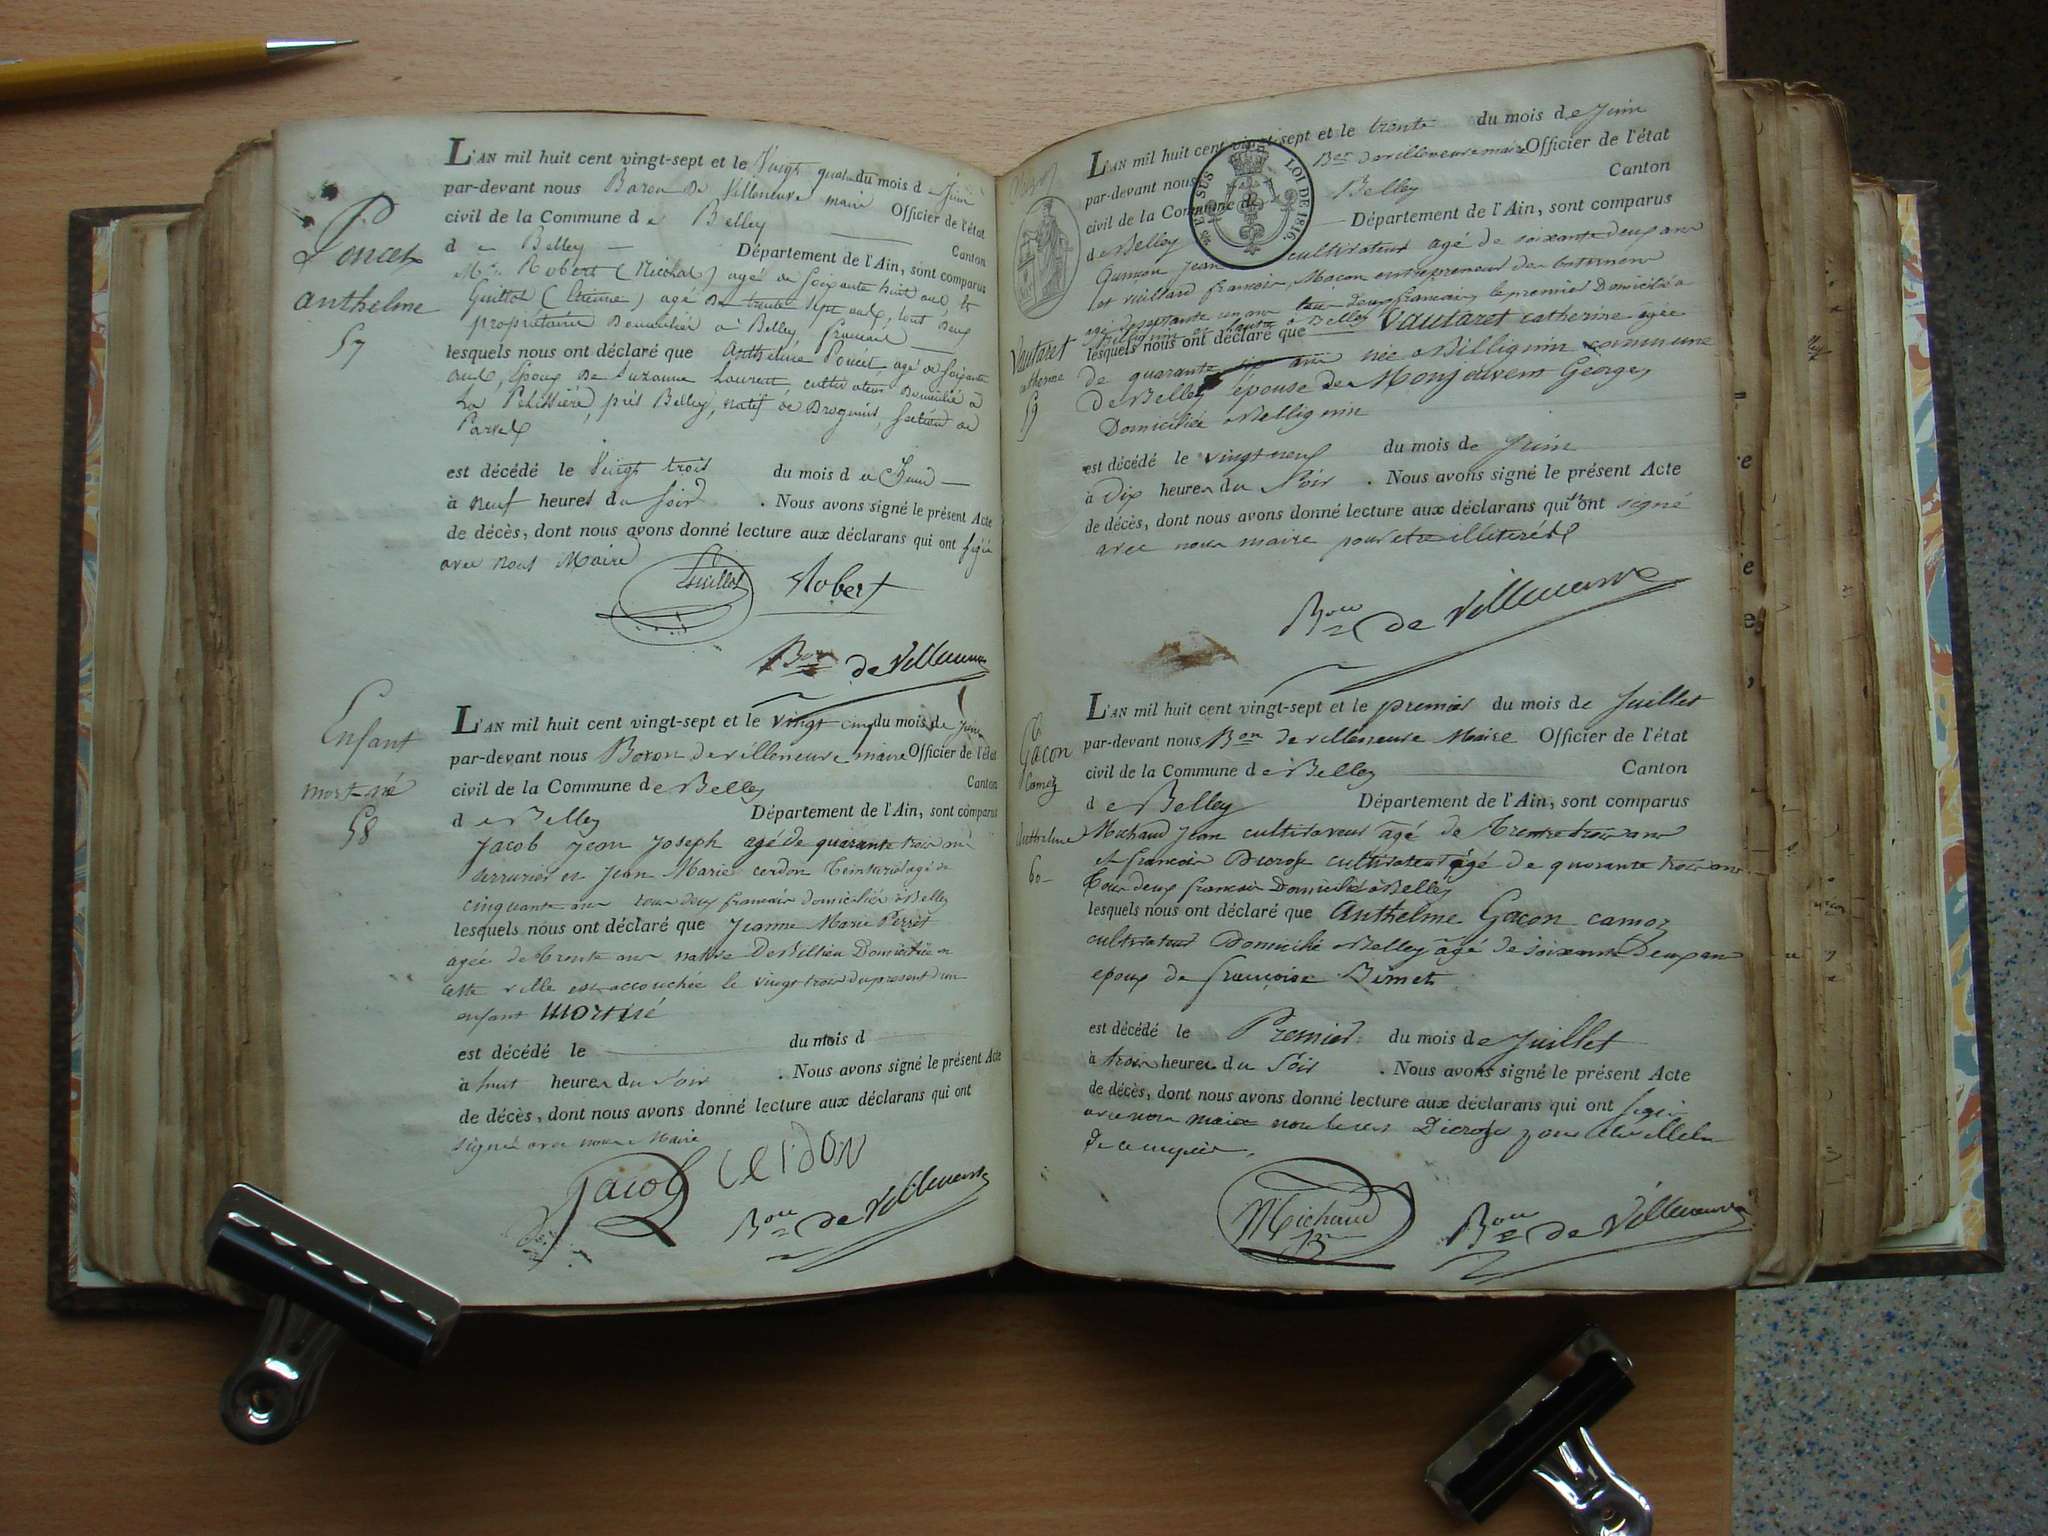 Poncet
Anthelme
57
L'AN mil huit cent vingt-sept et le Vingt quatre du mois de Juin
par-devant nous Baron de Villeneuve maire Officier de l'état
civil de la Commune de Belley Canton
de Belley Département de l'Ain, sont comparus
Mrs Robert (Nicolas) agé de Soixante huit ans, et
Guillot (Etienne) agé de trente Sept ans, tout deux
propriétaire Domicilié à Belley francais
lesquels nous ont déclaré que Anthelme Poncet, agé de Soixante
ans, Epoux de Suzanne Laurent, cultivateur Domicilié à
La Pelissière, près Belley, natif de
est décédé le Vingt trois du mois de Juin
à neuf heures du Soir . Nous avons signé le présent Acte
de décès, dont nous avons donné lecture aux déclarans qui ont signé
avec nous Maire
Guillot Robert
Bon de Villeneuve
Enfant
mort-né
58
L'AN mil huit cent vingt-sept et le vingt cinq du mois de juin
par-devant nous Baron de villeneuve maire Officier de l'état
civil de la Commune de Belley Canton
de Belley Département de l'Ain, sont comparus
Jacob Jean Joseph agé de quarante trois ans
serrurier et Jean Marie cerdon Teinturier agé de
cinquante ans tous deux francais domiciliés à Belley
lesquels nous ont déclaré que Jeanne Marie Perret
agée de trente ans native De Billieu Domiciliée en
cette ville est accouchée le vingt trois du present d'un
enfant mort né
est décédé le du mois d
à huit heures du Soir . Nous avons signé le présent Acte
de décès, dont nous avons donné lecture aux déclarans qui ont
signé avec nous Maire
Jacob Cerdon
Bon de Villeneuve
Vautaret
catherine
59
L'AN mil huit cent vingt-sept et le trente du mois de Juin
par-devant nous Bon de villeneuve maire Officier de l'état
civil de la Commune de Belley Canton
de Belley Département de l'Ain, sont comparus
Jean cultivateur agé de soixante deux ans
et vuillard francois, Macon entrepreneur de batimens
agé de septante un ans tous deux francais, le premier Domicilié a
Billignin et l'autre à Belley
lesquels nous ont déclaré que Vautaret catherine agée
de quarante six ans née a Billignin commune
de Belley épouse de Monjouvent George,
Domiciliée a Billignin
est décédé le vingt neuf du mois de Juin
à Dix heures du Soir . Nous avons signé le présent Acte
de décès, dont nous avons donné lecture aux déclarans qui n'ont signé
avec nous maire pour etre illiterés
Bon de Villeneuve
EN SUS LOI DE 1816.
Gacon
Camoz
Anthelme
60
L'AN mil huit cent vingt-sept et le premier du mois de Juillet
par-devant nous Bon de villeneuve Maire Officier de l'état
civil de la Commune de Belley Canton
de Belley Département de l'Ain, sont comparus
Michaud Jean cultivateur agé de Trente trois ans
et francois Dicroze cultivateur agé de quarante trois ans
Tous deux francais Domiciliés à Belley
lesquels nous ont déclaré que Anthelme Gacon camoz
cultivateur Domicilié a Belley agé de soixante Deux ans
epoux de francoise Bimet
est décédé le Premier du mois de Juillet
à trois heures du Soir . Nous avons signé le présent Acte
de décès, dont nous avons donné lecture aux déclarans qui ont signé
avec nous maire non lesus Dicroze pour etre illetré
de ce enquis.
Michaud
Bon de Villeneuve